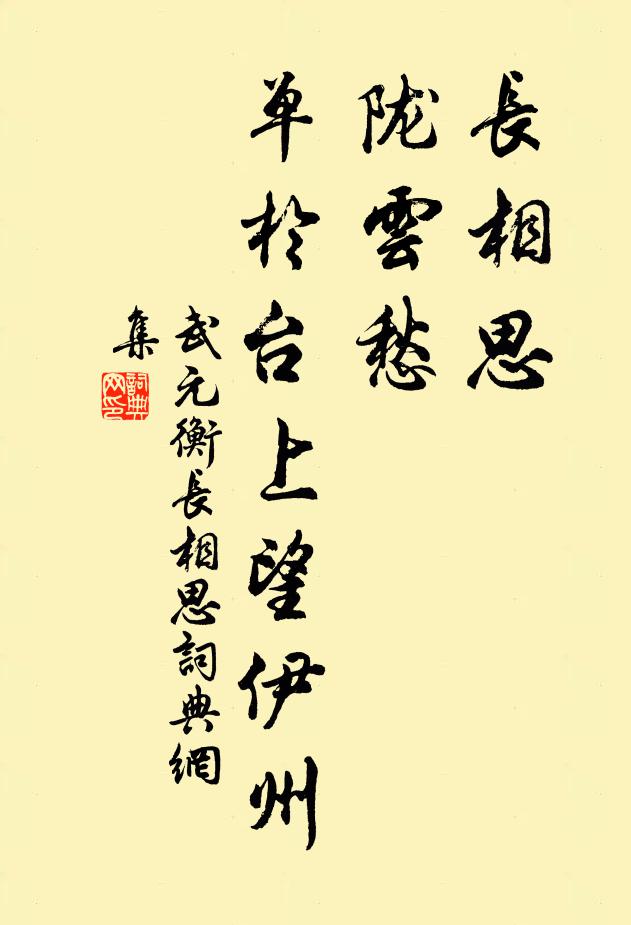 長相思
陇雲愁
单於台上望伊州
武元衡長相思詞典網
集
詞典
网印